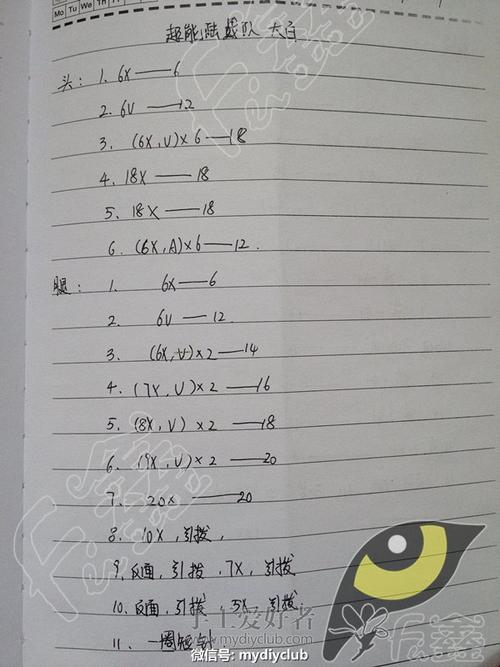 Mo Tu We Th Fr
超能陆战队 大白
头: 1. 6X——6
2. 6V——12
3. (6X,V)×6——18
4. 18X——18
5. 18X——18
6. (6X,A)×6——12.
腿: 1. 6X——6
2. 6V——12.
3. (6X,V)×2——14
4. (7X,V)×2——16
5. (8X,V)×2——18
6. (9X,V)×2——20
7. 20X——20
8. 10X,引拨,
9. 反面,引拨,7X,引拨
10. 反面,引拨 5X,引拨
11. 一圈短针
手工爱好者
www.mydiyclub.com
微信号: mydiyclub